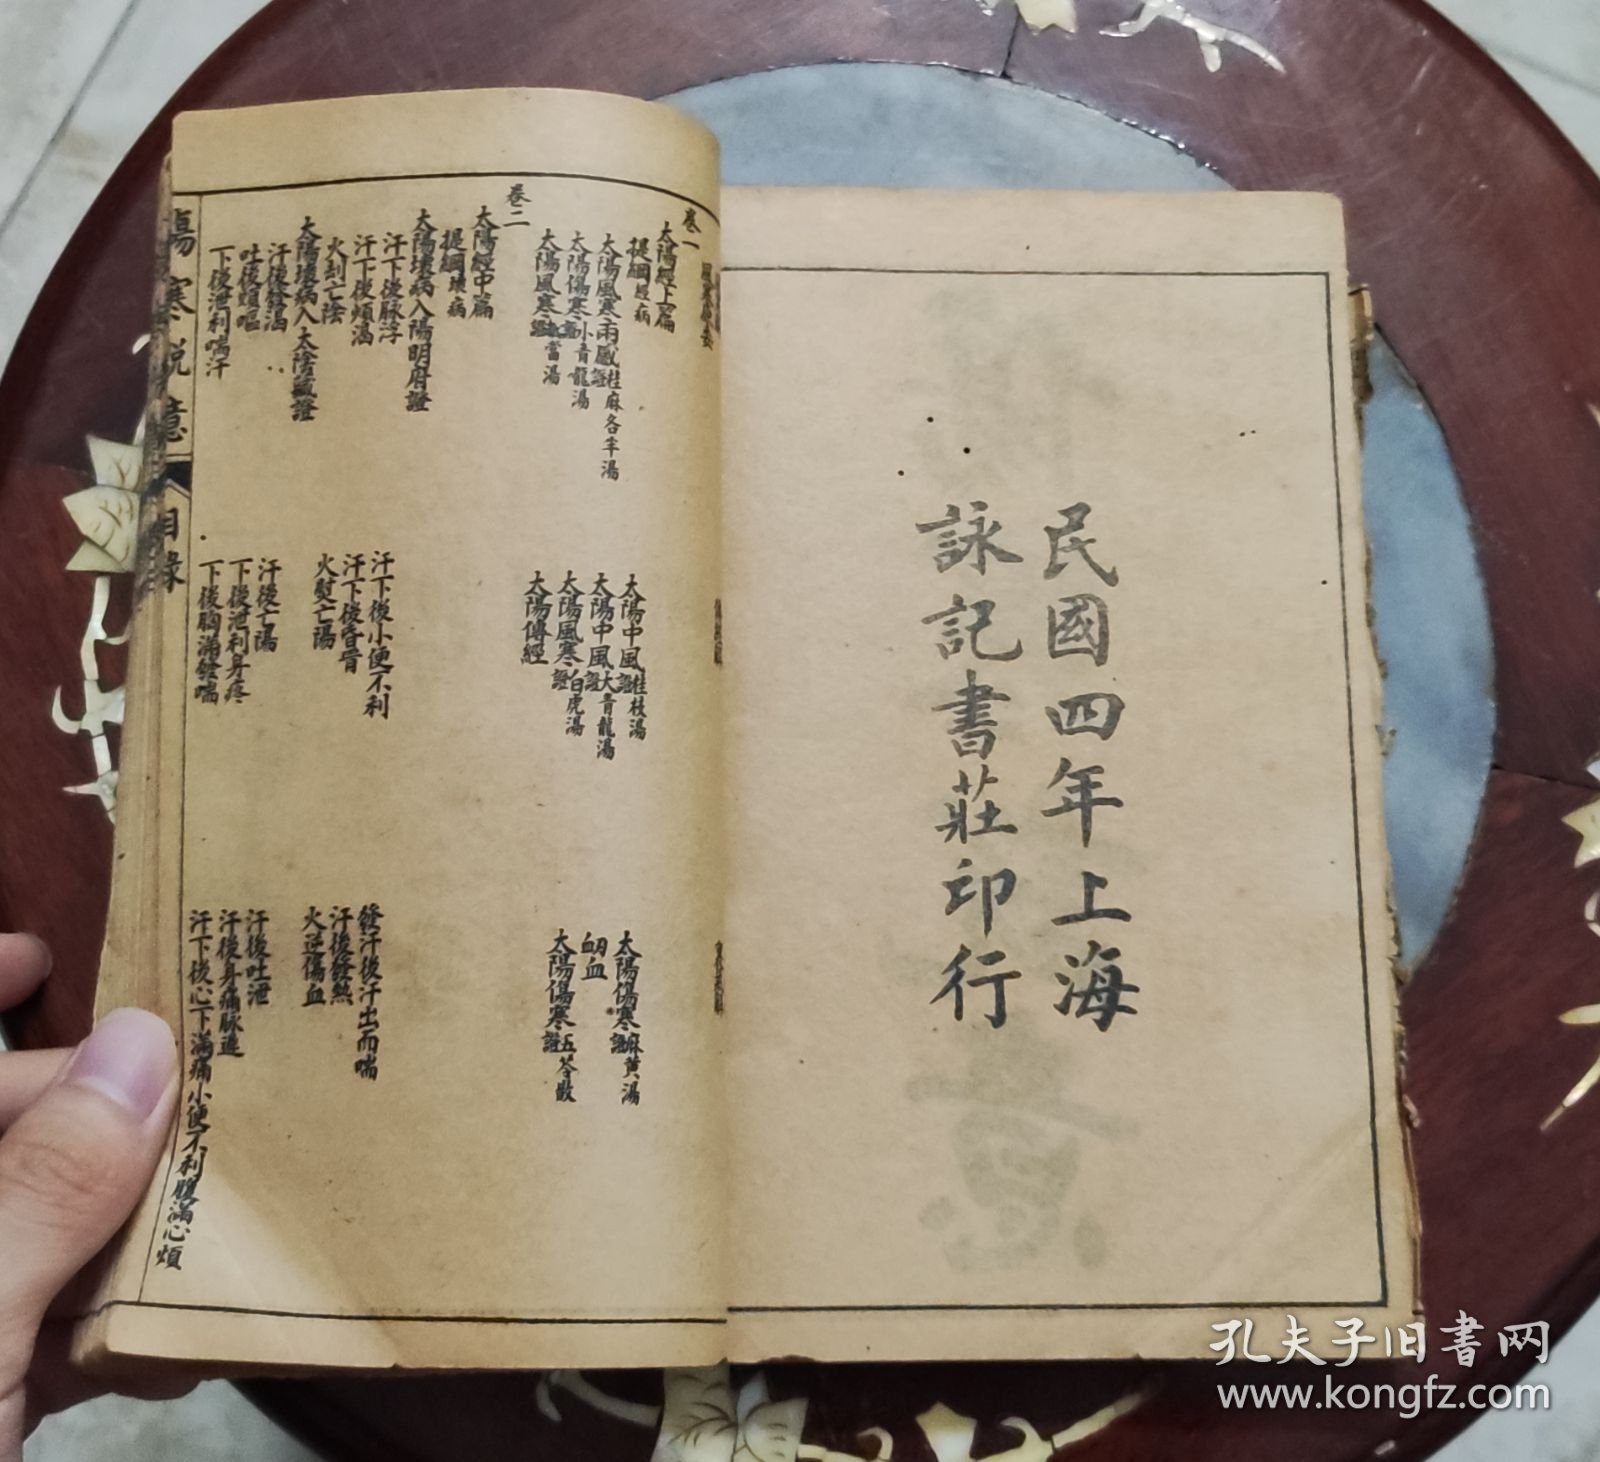 民國四年上海
詠記書莊印行
卷一
太陽經上篇
提綱 經病
太陽中風證 桂枝湯
太陽傷寒證 麻黃湯
太陽風寒兩感證 桂麻各半湯
太陽中風證 大青龍湯
衂血
太陽傷寒證 小青龍湯
太陽風寒證 白虎湯
太陽傷寒證 五苓散
太陽傳經
卷二
太陽經中篇
提綱 壞病
太陽壞病入陽明府證
汗下後脉浮
汗下後小便不利
發汗後汗出而喘
汗下後煩渴
汗下後昏冒
汗後發熱
火刦亡陰
火熨亡陽
火逆傷血
太陽壞病入太陰藏證
汗後發渴
汗後亡陽
汗後吐泄
吐後煩嘔
下後泄利身疼
汗後身痛脉遲
下後泄利喘汗
下後胸滿發喘
汗下後心下滿痛小便不利腹滿心煩
傷寒說意 目錄
孔夫子旧书网
www.kongfz.com